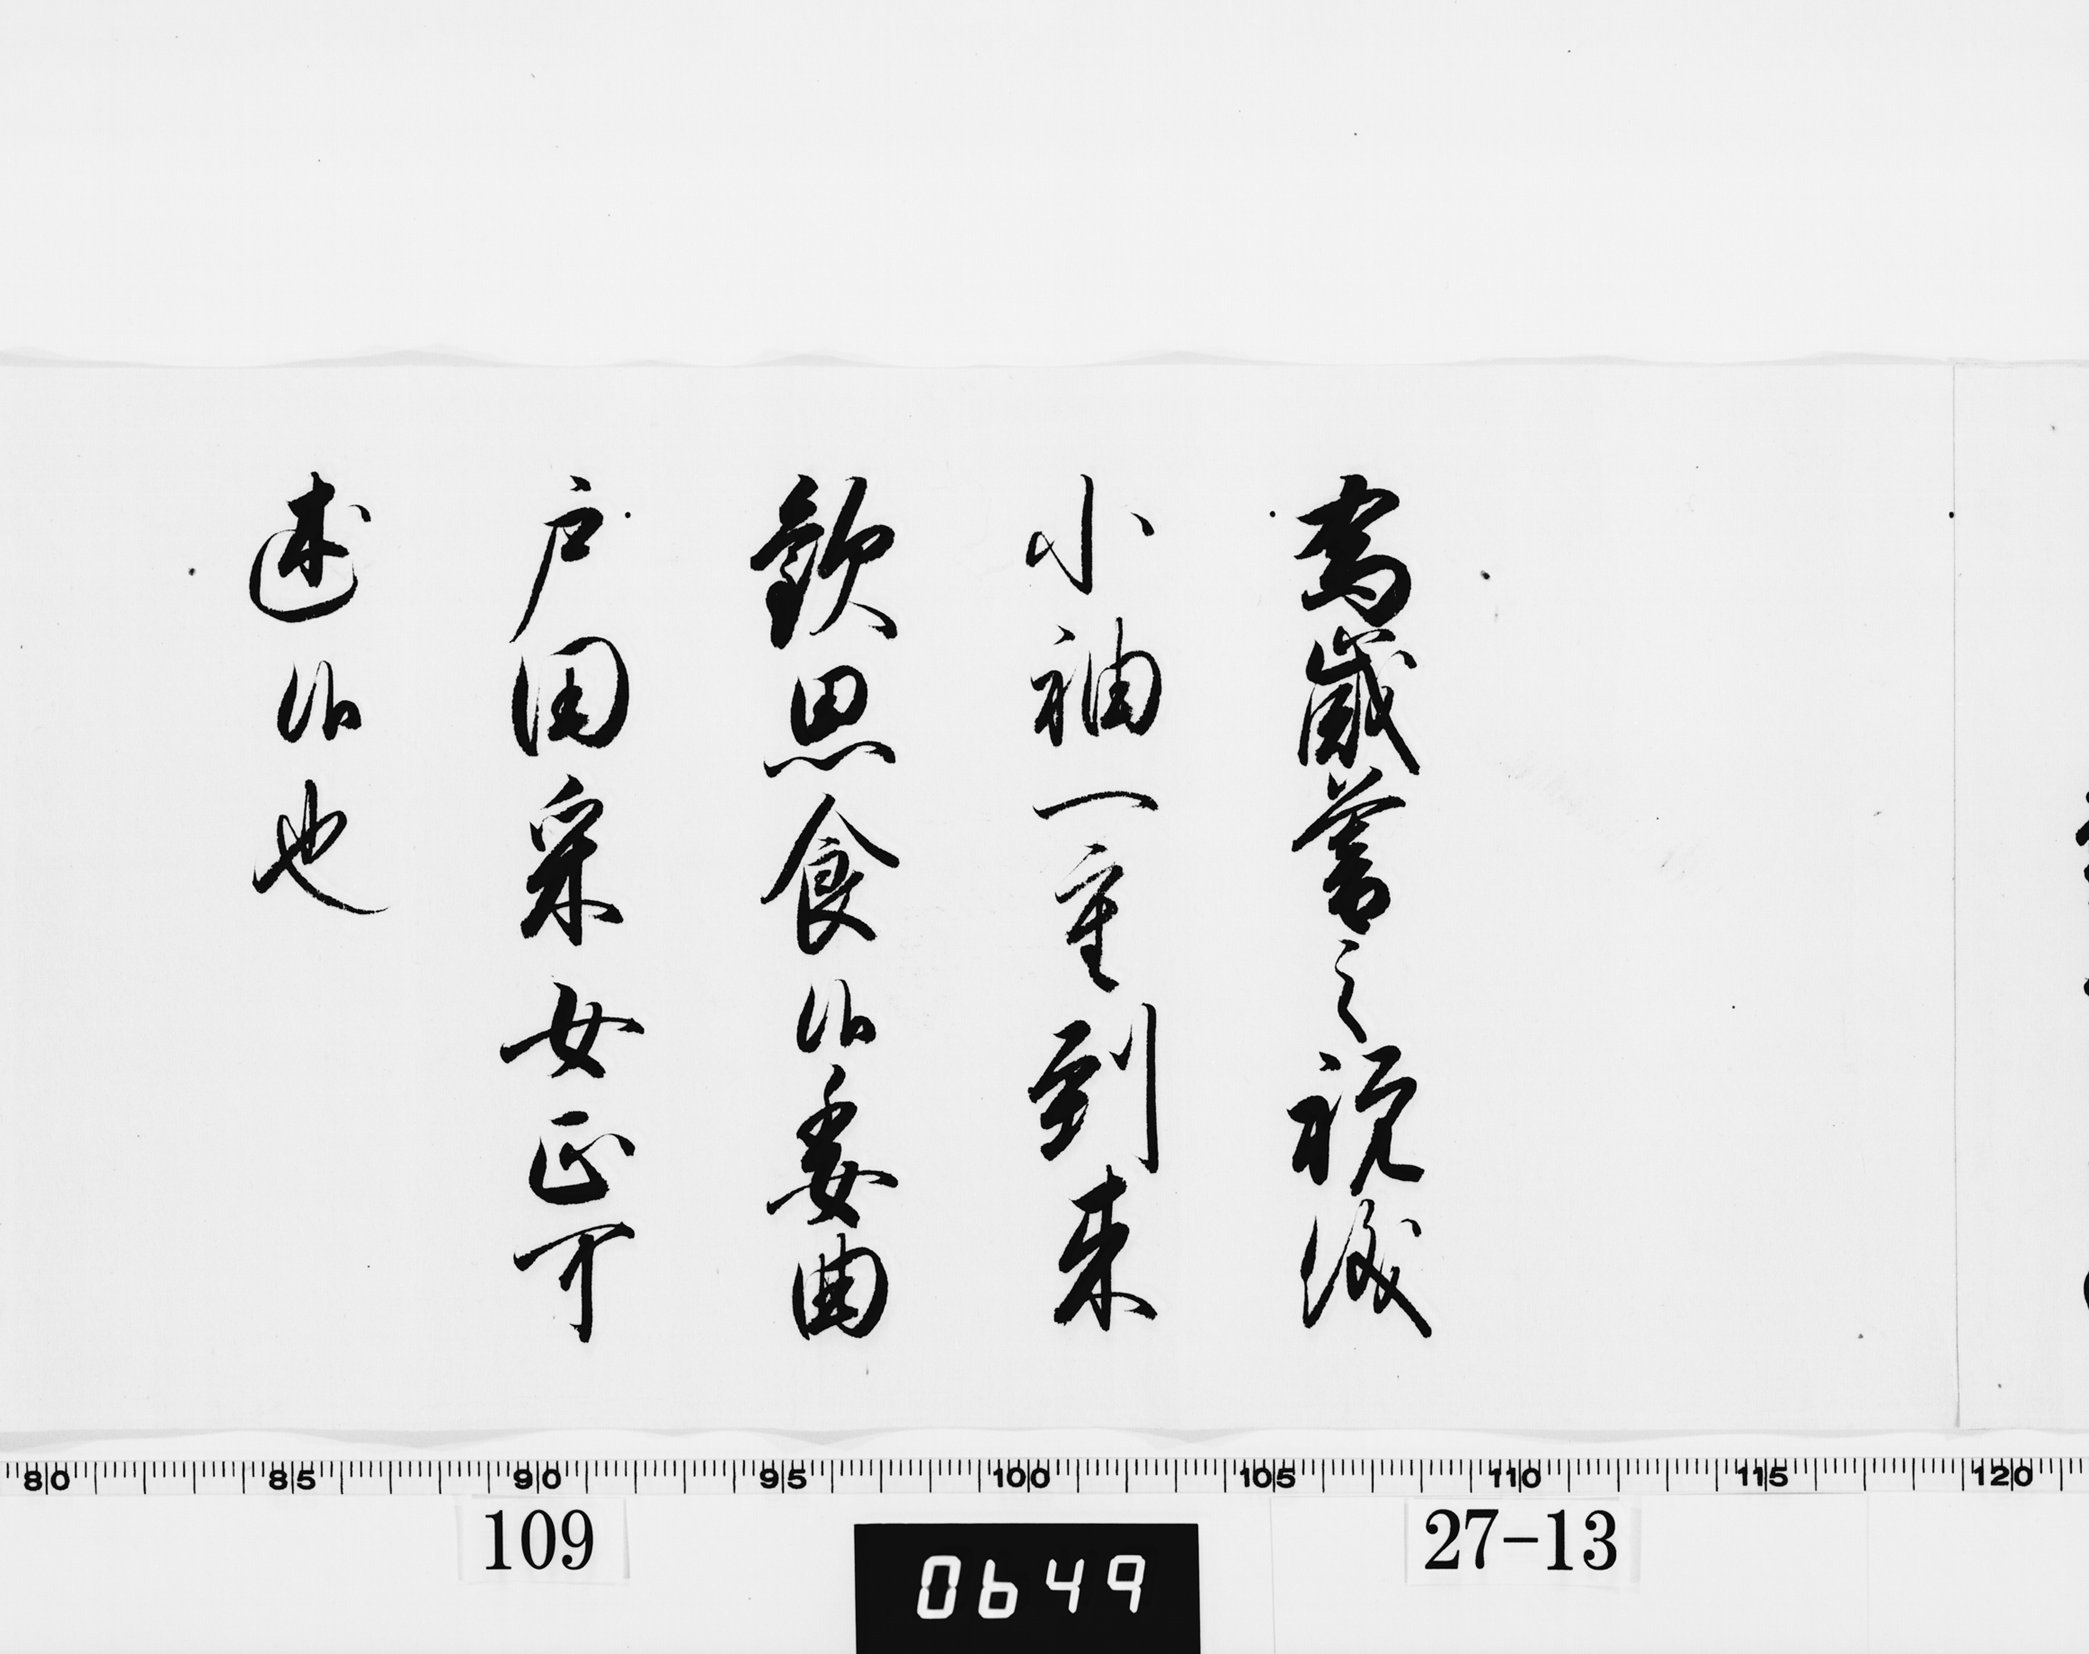 為歳暮之祝儀
小袖一重到来
歓思食候委曲
戸田采女正可
述候也
80 85 90 95 100 105 110 115 120
109
0649
27-13